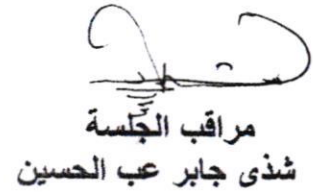 مراقب الجلسة
شذى جابر عب الحسين